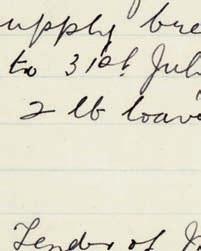 supply bre
to 31st July
2 lb loave
Tender of J